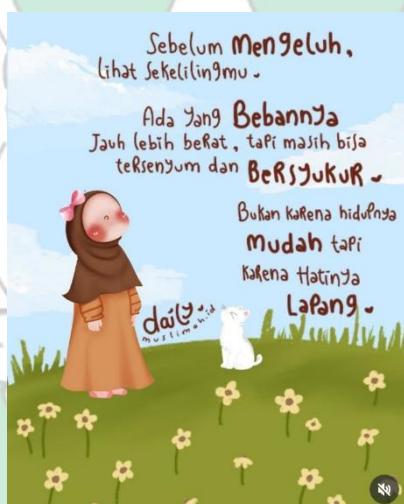 Sebelum Mengeluh,
lihat sekelilingmu.
Ada Yang Bebannya
Jauh lebih berat, tapi masih bisa
tersenyum dan Bersyukur.
Bukan karena hidupnya
Mudah tapi
Karena Hatinya
Lapang.
daily
muslimah.id